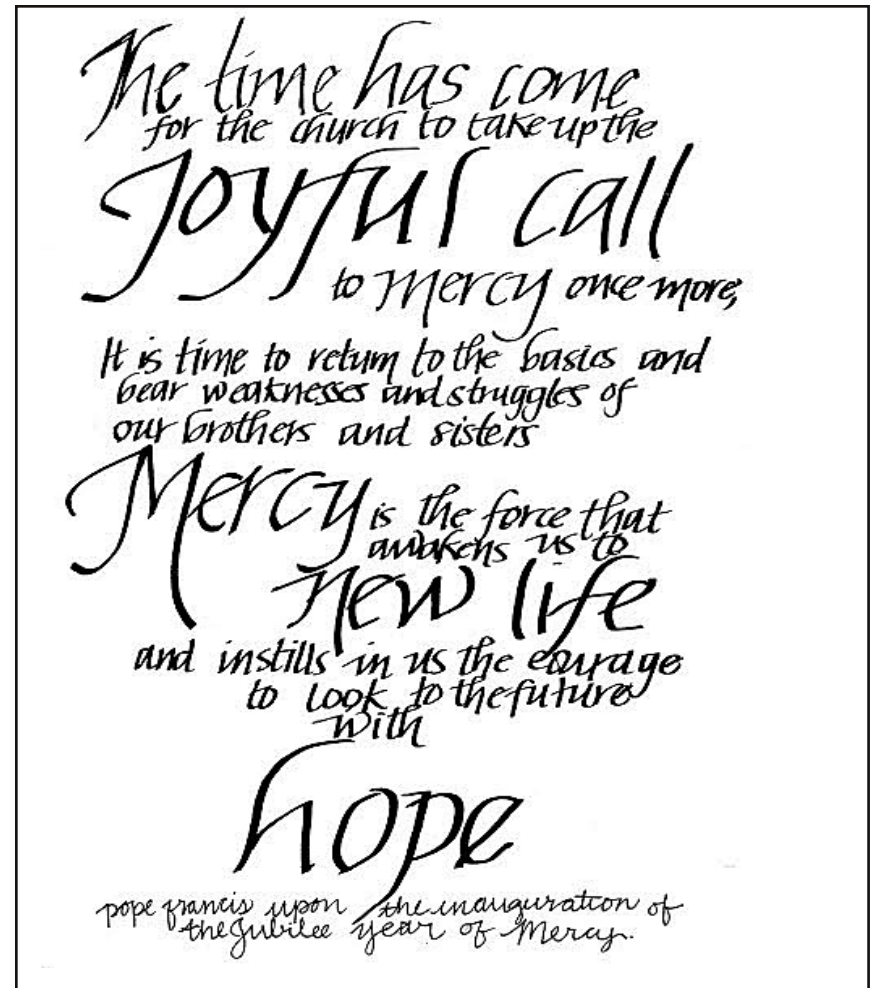 The time has come
for the church to take up the
Joyful call
to Mercy once more;
It is time to return to the basics and
bear weaknesses and struggles of
our brothers and sisters
Mercy is the force that
awakens us to
new life
and instills in us the courage
to look to the future
with
hope
pope francis upon the inauguration of
the Jubilee year of Mercy.